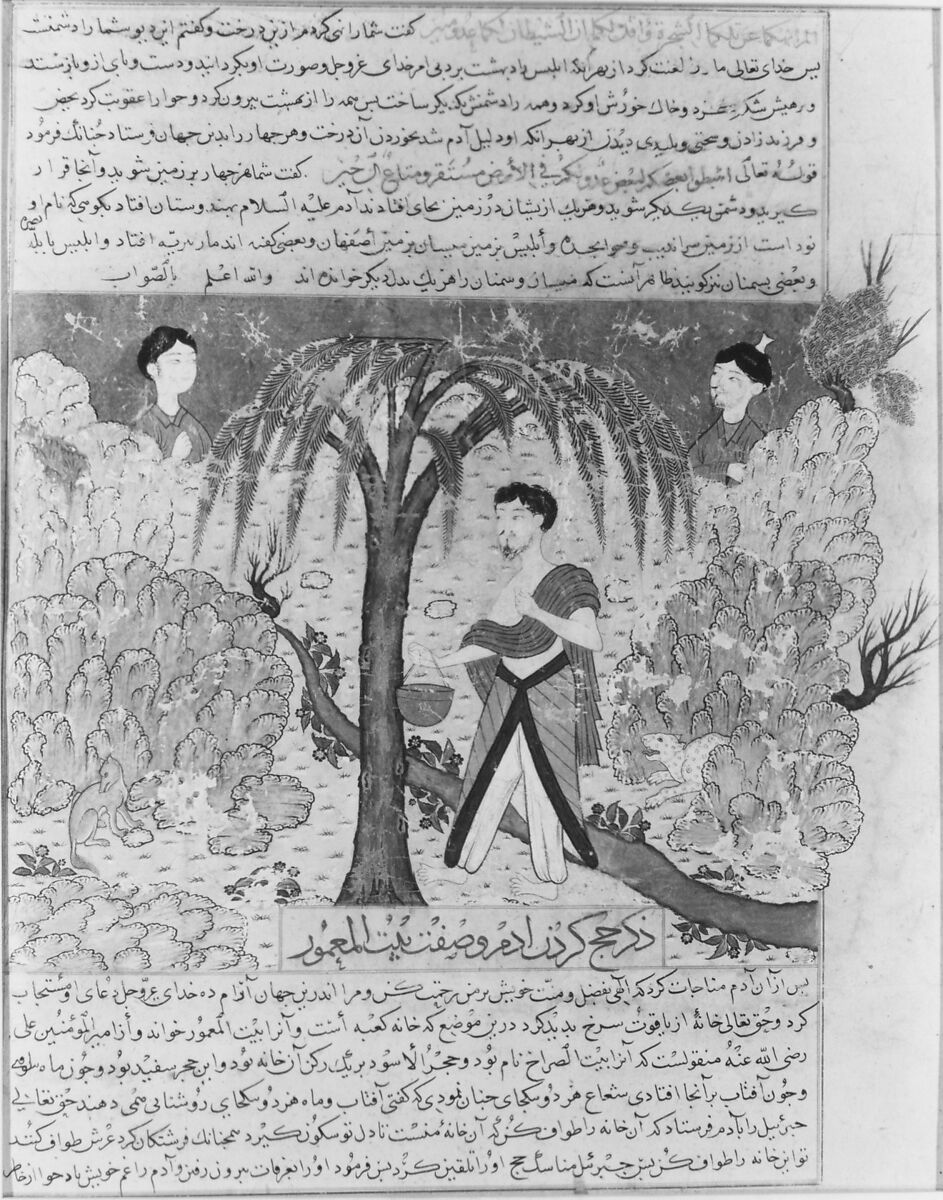 الم انهكما عن تلكما الشجرة واقل لكما ان الشیطان لكما عدو مبین گفت شما را نهی کردم ازین درخت و گفتم این دیو شما را دشمنست
پس خدای تعالی مار را لعنت کرد از بهر آنکه ابلیس را در بهشت برد بی امر خدای عزوجل و صورت او بگردانید و دست و پای ازو بازستد
و خاک خورش او کرد و همه را دشمن یکدیگر ساخت پس همه را از بهشت بیرون کرد و حوا را عقوبت کرد بحیض
و فرزند زادن و سختی و پلیدی دیدن از بهر آنکه او دلیل آدم شد بخوردن آن درخت و هر چهار را بدین جهان فرستاد چنانک فرمود
قوله تعالی اهبطوا بعضکم لبعض عدو ولکم فی الارض مستقر ومتاع الی حین گفت شما هر چهار بر زمین شوید و آنجا قرار
گیرید و دشمن یکدیگر شوید و هر یک ازیشان در زمین بجای افتادند آدم علیه السلام بهندوستان افتاد بکوهی که نام او
نود است از زمین سراندیب و حوا بجده و ابلیس بزمین میسان و مار بزمین اصفهان و بعضی گفته اند مار ببریه افتاد و ابلیس بابله بصره
و بعضی بسمنان نیز گویند ظاهر آنست که میسان و سمنان را هر یک بدل دیگر خوانده اند والله اعلم بالصواب
ذکر حج کردن ادم و صفت بیت المعمور
پس از آن آدم مناجات کرد که الهی بفضل و منت خویش بر من رحمت کن و مرا اندرین جهان آرام ده خدای عزوجل دعای او مستجاب
کرد و حق تعالی خانهٔ از یاقوت سرخ پدید کرد درین موضع که خانه کعبه است و آنرا بیت المعمور خواند و از امیر المؤمنین علی
رضی الله عنه منقولست که آنرا بیت الصراح نام بود و حجر الاسود بر یک رکن آن خانه بود و این حجر سفید بود و چون ماه
و چون آفتاب بر آنجا افتادی شعاع هر دو یکجای چنان نمودی که گفتی آفتاب و ماه هر دو یکجای روشنائی می دهند حق تعالی
جبرئیل را بآدم فرستاد که آن خانه را طواف کن که آن خانهٔ منست تا دل تو سکون گیرد همچنانک فرشتگان گرد عرش طواف کنند
تو این خانه را طواف کن پس جبرئیل مناسک حج او را تلقین کرد پس فرمود او را بعرفات بیرون رفتن و آدم را غم خویش یاد حوا از خاطر